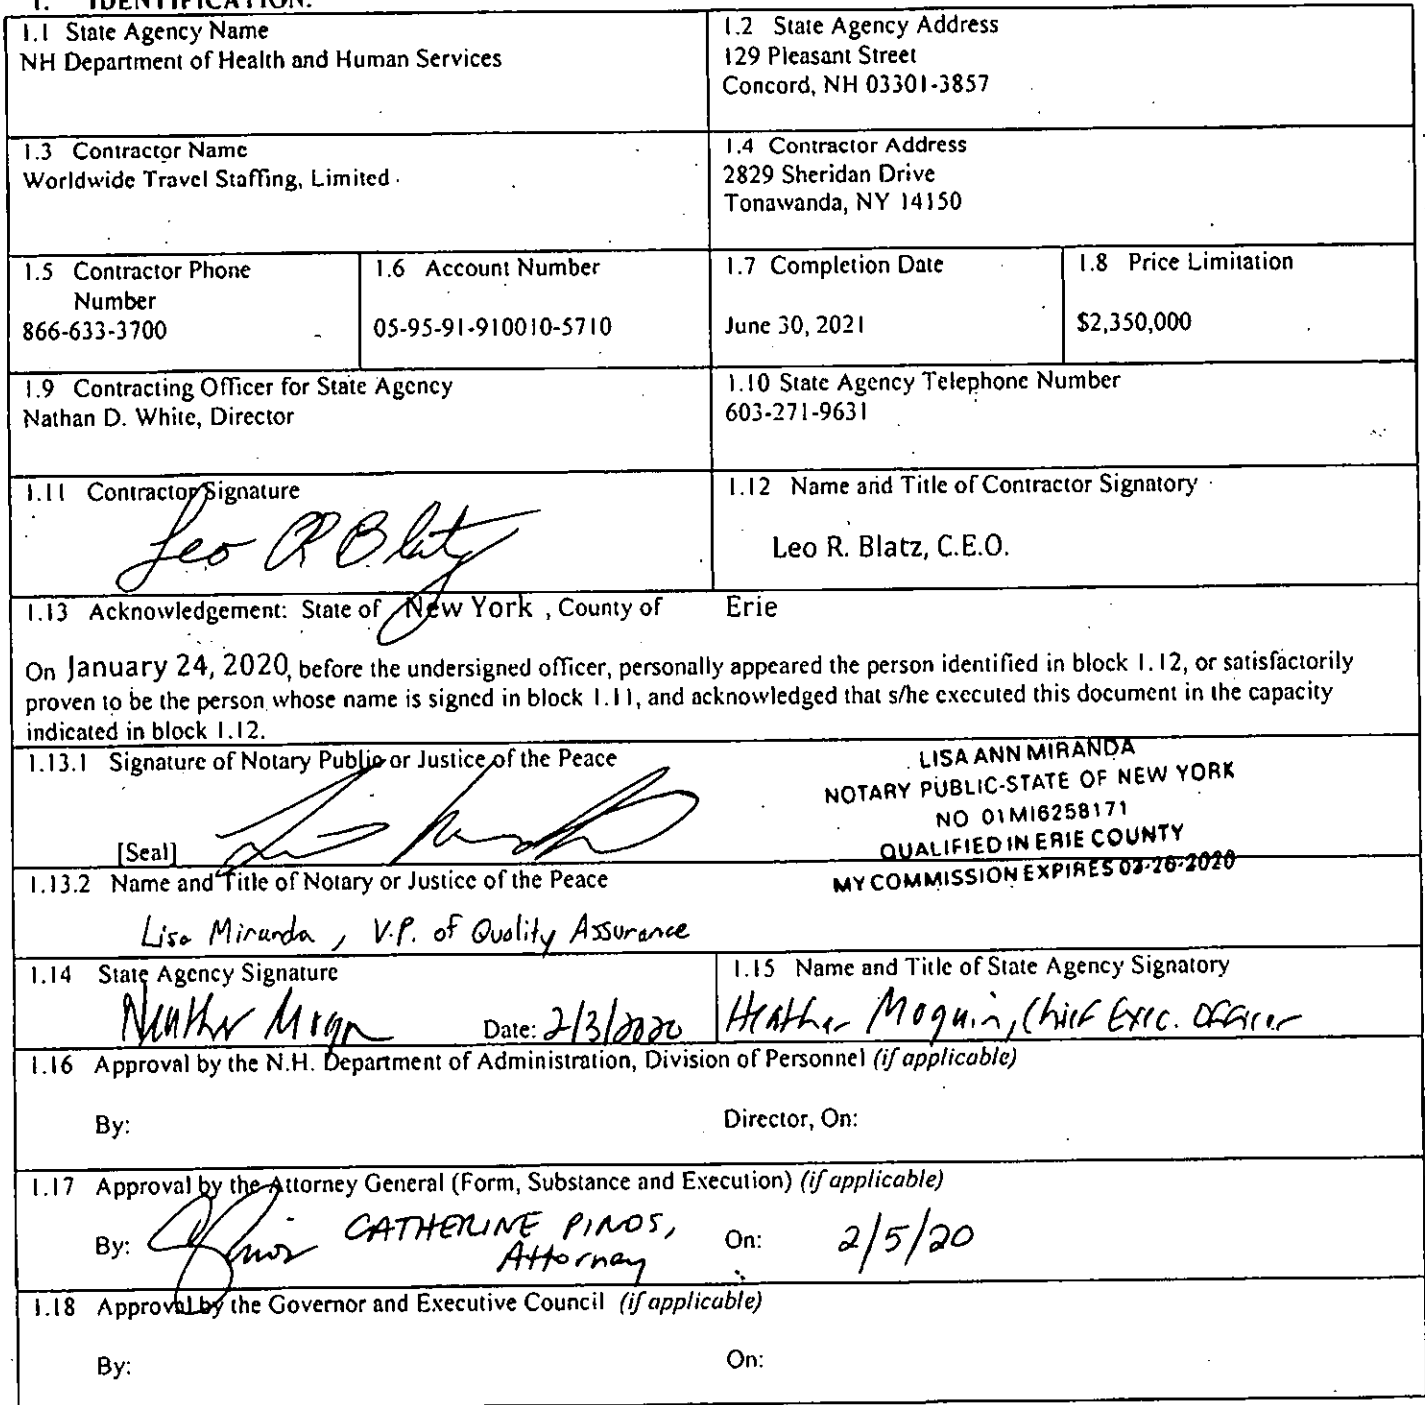 1. IDENTIFICATION.
1.1 State Agency Name
NH Department of Health and Human Services
1.2 State Agency Address
129 Pleasant Street
Concord, NH 03301-3857
1.3 Contractor Name
Worldwide Travel Staffing, Limited
1.4 Contractor Address
2829 Sheridan Drive
Tonawanda, NY 14150
1.5 Contractor Phone
Number
866-633-3700
1.6 Account Number
05-95-91-910010-5710
1.7 Completion Date
June 30, 2021
1.8 Price Limitation
$2,350,000
1.9 Contracting Officer for State Agency
Nathan D. White, Director
1.10 State Agency Telephone Number
603-271-9631
1.11 Contractor Signature
Leo R Blatz
1.12 Name and Title of Contractor Signatory
Leo R. Blatz, C.E.O.
1.13 Acknowledgement: State of New York , County of Erie
On January 24, 2020, before the undersigned officer, personally appeared the person identified in block 1.12, or satisfactorily
proven to be the person whose name is signed in block 1.11, and acknowledged that s/he executed this document in the capacity
indicated in block 1.12.
1.13.1 Signature of Notary Public or Justice of the Peace
[Seal]
LISA ANN MIRANDA
NOTARY PUBLIC-STATE OF NEW YORK
NO 01MI6258171
QUALIFIED IN ERIE COUNTY
MY COMMISSION EXPIRES 03-26-2020
1.13.2 Name and Title of Notary or Justice of the Peace
Lisa Miranda, V.P. of Quality Assurance
1.14 State Agency Signature
Date: 2/3/2020
1.15 Name and Title of State Agency Signatory
Heather Moquin, Chief Exec. Officer
1.16 Approval by the N.H. Department of Administration, Division of Personnel (if applicable)
By:
Director, On:
1.17 Approval by the Attorney General (Form, Substance and Execution) (if applicable)
By: CATHERINE PINOS,
Attorney
On: 2/5/20
1.18 Approval by the Governor and Executive Council (if applicable)
By:
On: